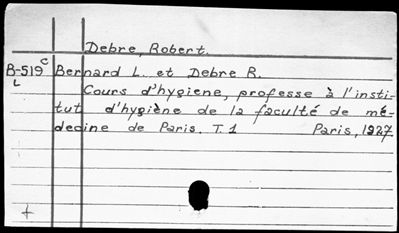 Debre, Robert.
B-519 c Bernard L. et Debre R.
L Cours d'hygiene, professe à l'insti-
tut d'hygiène de la faculté de mé-
decine de Paris. T.1 Paris, 1927